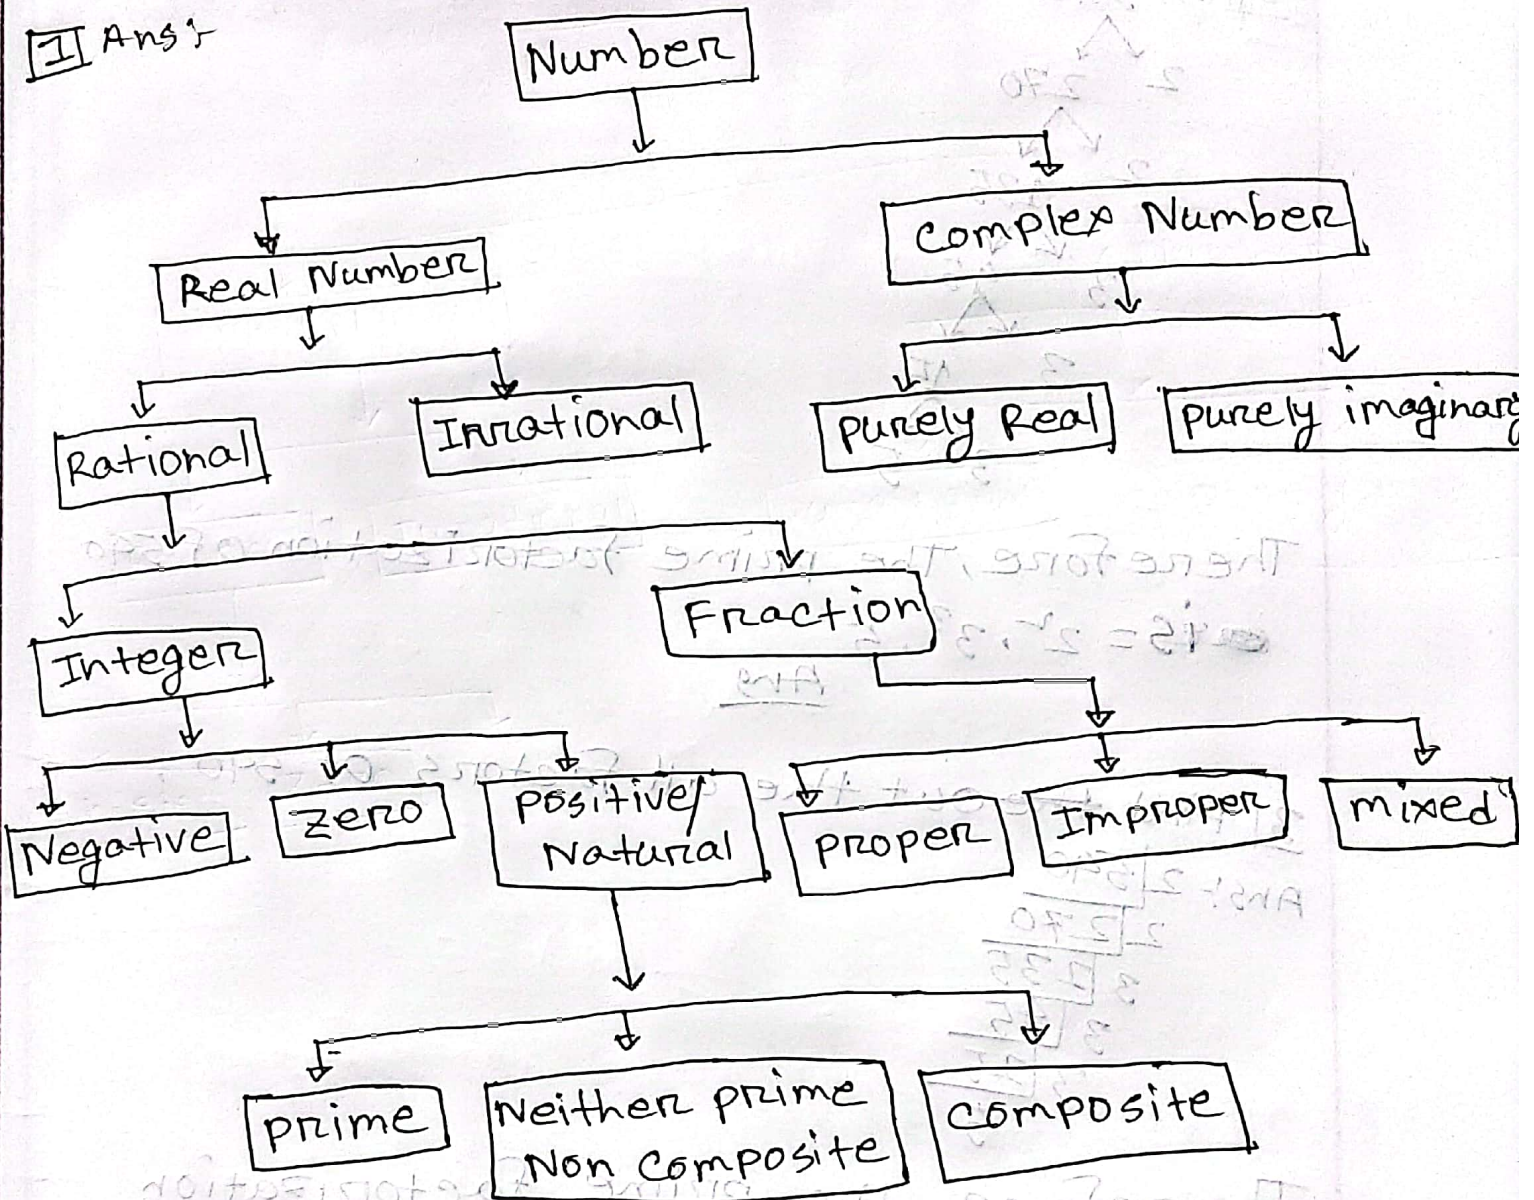 1 Ans:-
Number
Real Number
Complex Number
Rational
Irrational
purely Real
purely imaginary
Integer
Fraction
Negative
zero
positive/
Natural
proper
Improper
mixed
prime
Neither prime
Non composite
composite